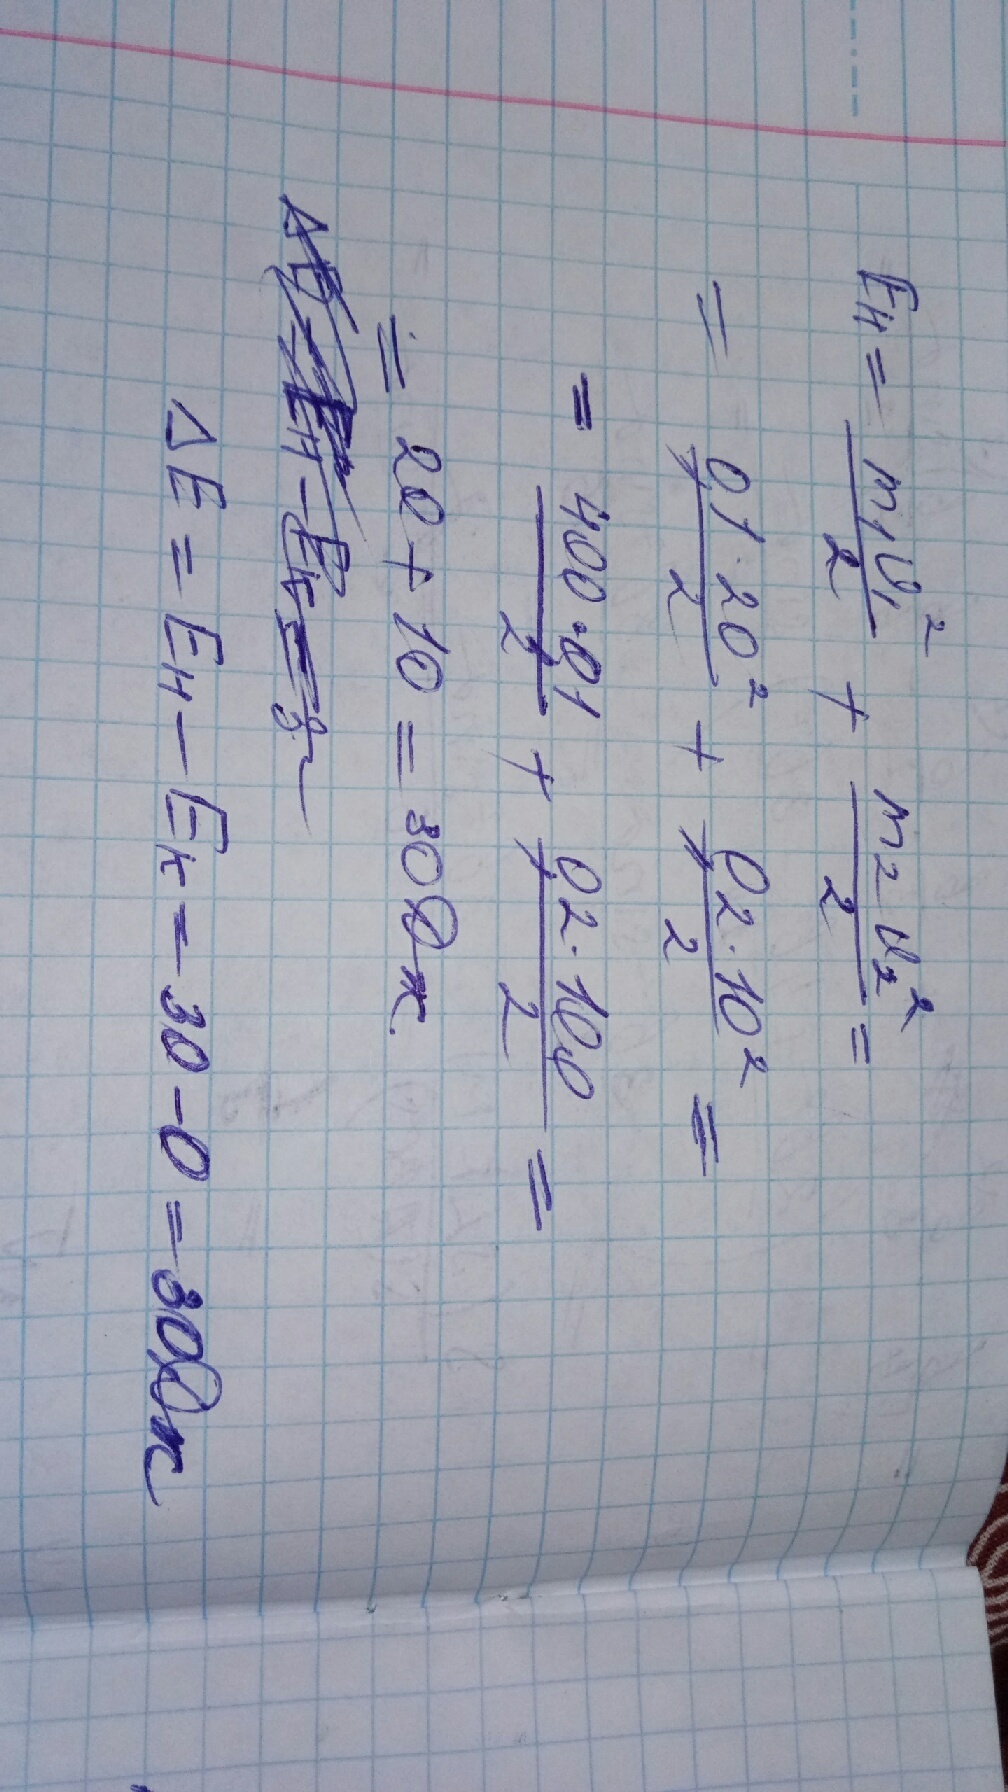 Eн = m₁υ₁²/2 + m₂υ₂²/2 =
= 01·20²/2 + 02·10²/2 =
= 400·01/2 + 02·100/2 =
= 20 + 10 = 30Дж
ΔE = Eн - Eк = 30 - 0 = 30Дж